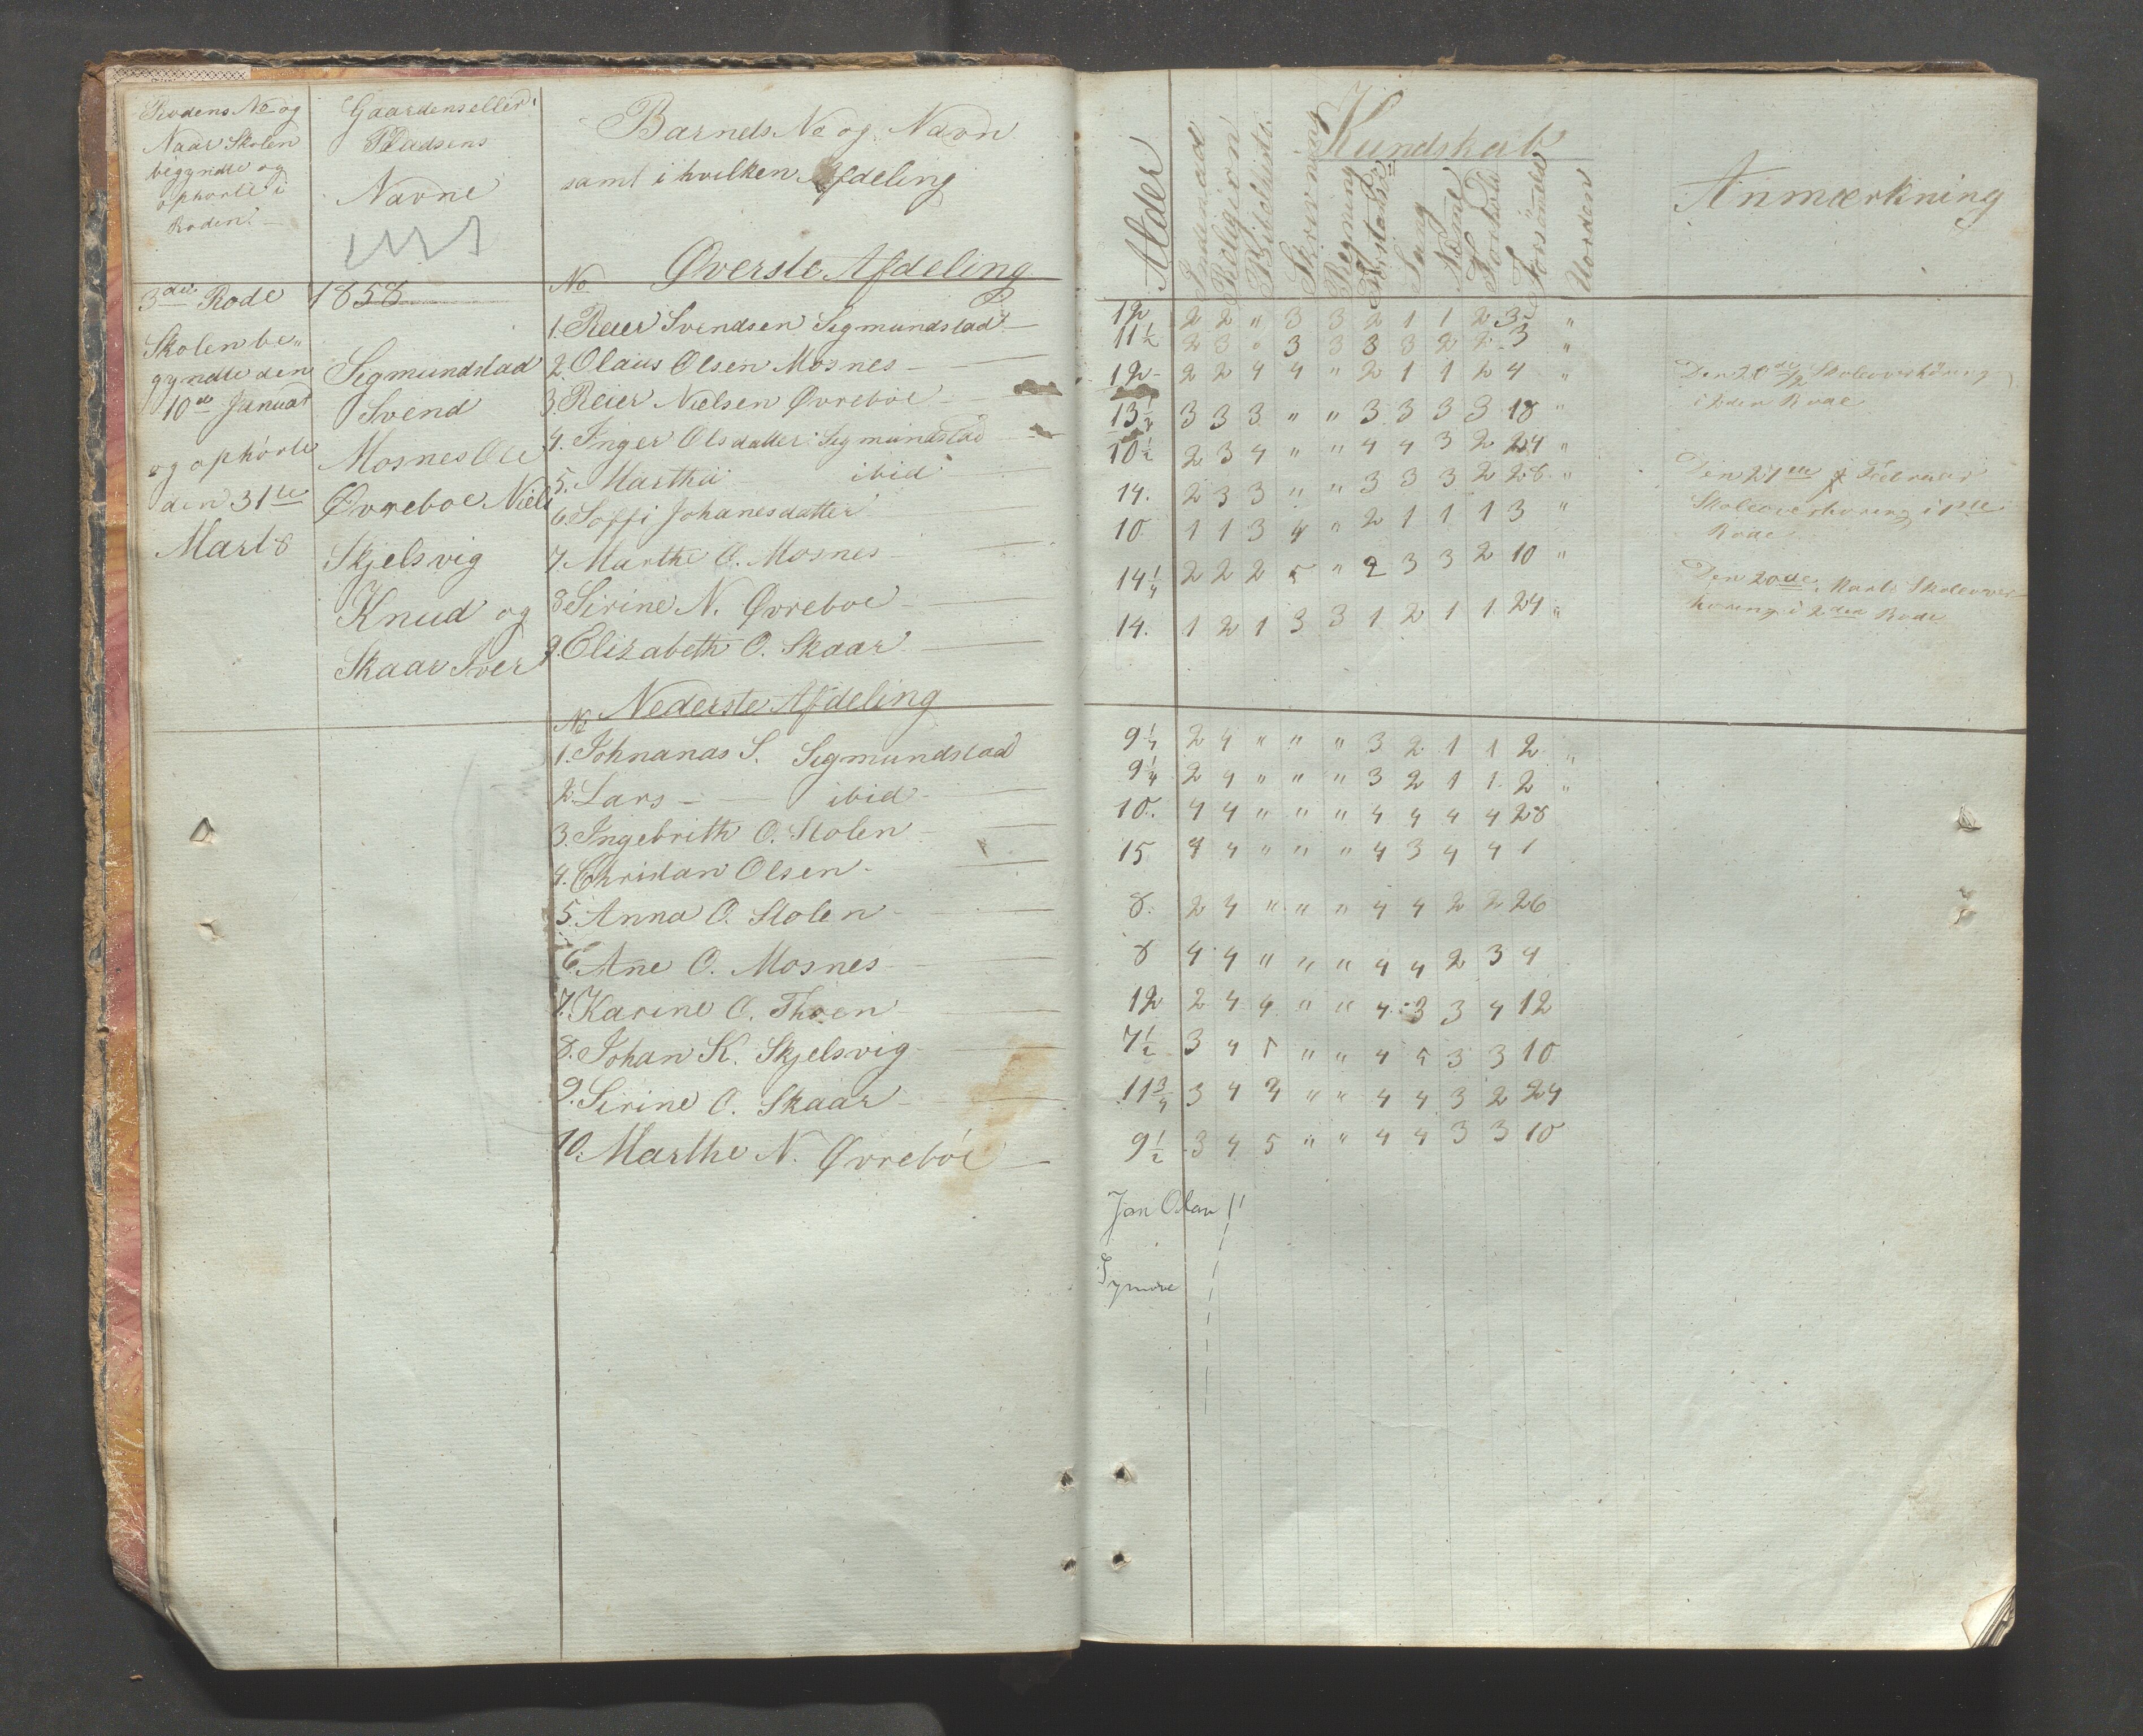 Rodens No og
Naar Skolen
begyndte og
ophörte i
Roden
Gaardens eller
Pladsens
Navne
Barnets No og Navn
samt i hvilken Afdeling
Øverste Afdeling
3die Rode 1858
Skolen be„
gyndte den
10de Januar
og ophörte
den 31te
Marts
Sigmundstad
Svend
Mosnes Ole
Øvreboe Niels
Skjelsvig
Knud og
Skaar Iver
No
1. Reier Svendsen Sigmundstad
2. Olaus Olsen Mosnes
3. Reier Nielsen Øvreböe
4. Inger Olsdatter Sigmundstad
5. Martha ibid
6. Soffi Johanesdatter
7. Marthe O. Mosnes
8. Sirine N. Øvreboe
9. Elizabeth O. Skaar
Nederste Afdeling
No
1. Johnanas S. Sigmundstad
2. Lars — — ibid
3. Ingebrith O. Stolen
4. Chridan Olsen
5. Anna O. Stolen
6. Ane O. Mosnes
7. Karine O. Thoen
8. Johan K. Skjelsvig
9. Sirine O. Skaar
10. Marthe N. Øvreböe
Kundskab
Alder
Religion
Skrivning
Regning
Sang
Uorden
Anmærkning
12 2 2 " 3 3 2 1 1 2 3 "
11½ 2 3 " 3 3 3 3 2 2 3 "
12 2 2 4 4 " 2 1 1 2 4 "
13½ 3 3 3 " " 3 3 3 3 18 "
10½ 2 3 4 " " 4 4 3 2 24 "
14. 2 3 3 " " 3 3 3 2 28 "
10 1 1 3 4 " 2 1 1 1 3 "
14¼ 2 2 2 5 " 2 3 3 2 10 "
14. 1 2 1 3 3 1 2 1 1 24 "
Skoleoverhöring
i 2den Rode
Den 27de Februar
Skoleoverhöring i 1ste
Rode
Den 20de Marts Skoleover-
höring i 2den Rode
9¼ 2 4 " " " 3 2 1 1 2 "
9¼ 2 4 " " " 3 2 1 1 2 "
10. 4 4 " " " 4 4 4 4 28
15 4 4 " " " 4 3 4 4 1
8. 2 4 " " " 4 4 2 2 26
8 4 4 " " " 4 4 2 3 4
12 2 4 4 " " 4 3 3 4 12
7½ 3 4 5 " " 4 5 3 3 10
11¾ 3 4 3 " " 4 4 3 2 24
9½ 3 4 5 " " 4 4 3 3 10
Jan Olau